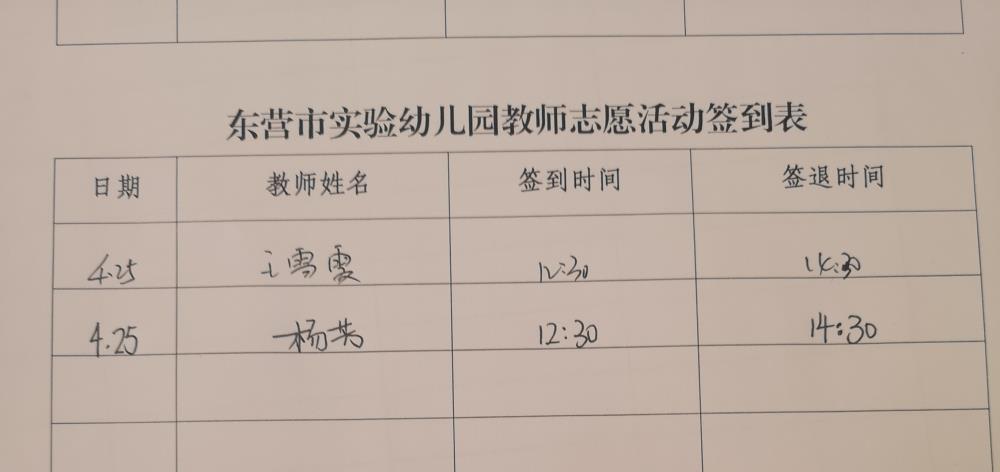 东营市实验幼儿园教师志愿活动签到表
日期 教师姓名 签到时间 签退时间
4.25 王雪霞 12:30 14:30
4.25 杨 12:30 14:30